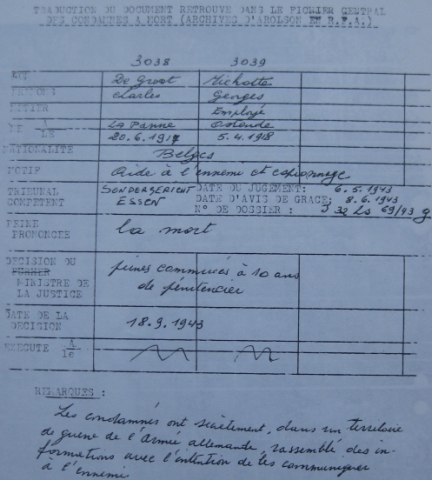 TRADUCTION DU DOCUMENT RETROUVE DANS LE FICHIER CENTRAL
DES CONDAMNES A MORT (ARCHIVES D'AROLSEN EN R.F.A.)
3038 3039
De Groot Michotte
Charles Georges
Employé
LA PANNE Ostende
20.6.1917 5.4.1918
NATIONALITE Belges
MOTIF Aide à l'ennemi et espionnage
TRIBUNAL SONDERGERICHT DATE DU JUGEMENT: 6.5.1943
COMPETENT ESSEN DATE D'AVIS DE GRACE: 8.6.1943
N° DE DOSSIER :
PEINE la mort
PRONONCEE
DECISION DU peines commuées à 10 ans
FUHRER
MINISTRE DE de pénitencier
LA JUSTICE
DATE DE LA 18.9.1943
DECISION
EXECUTE
REMARQUES :
Les condamnés ont secrètement, dans un territoire
de guerre de l'Armée allemande, rassemblé des in-
formations avec l'intention de les communiquer
à l'ennemi